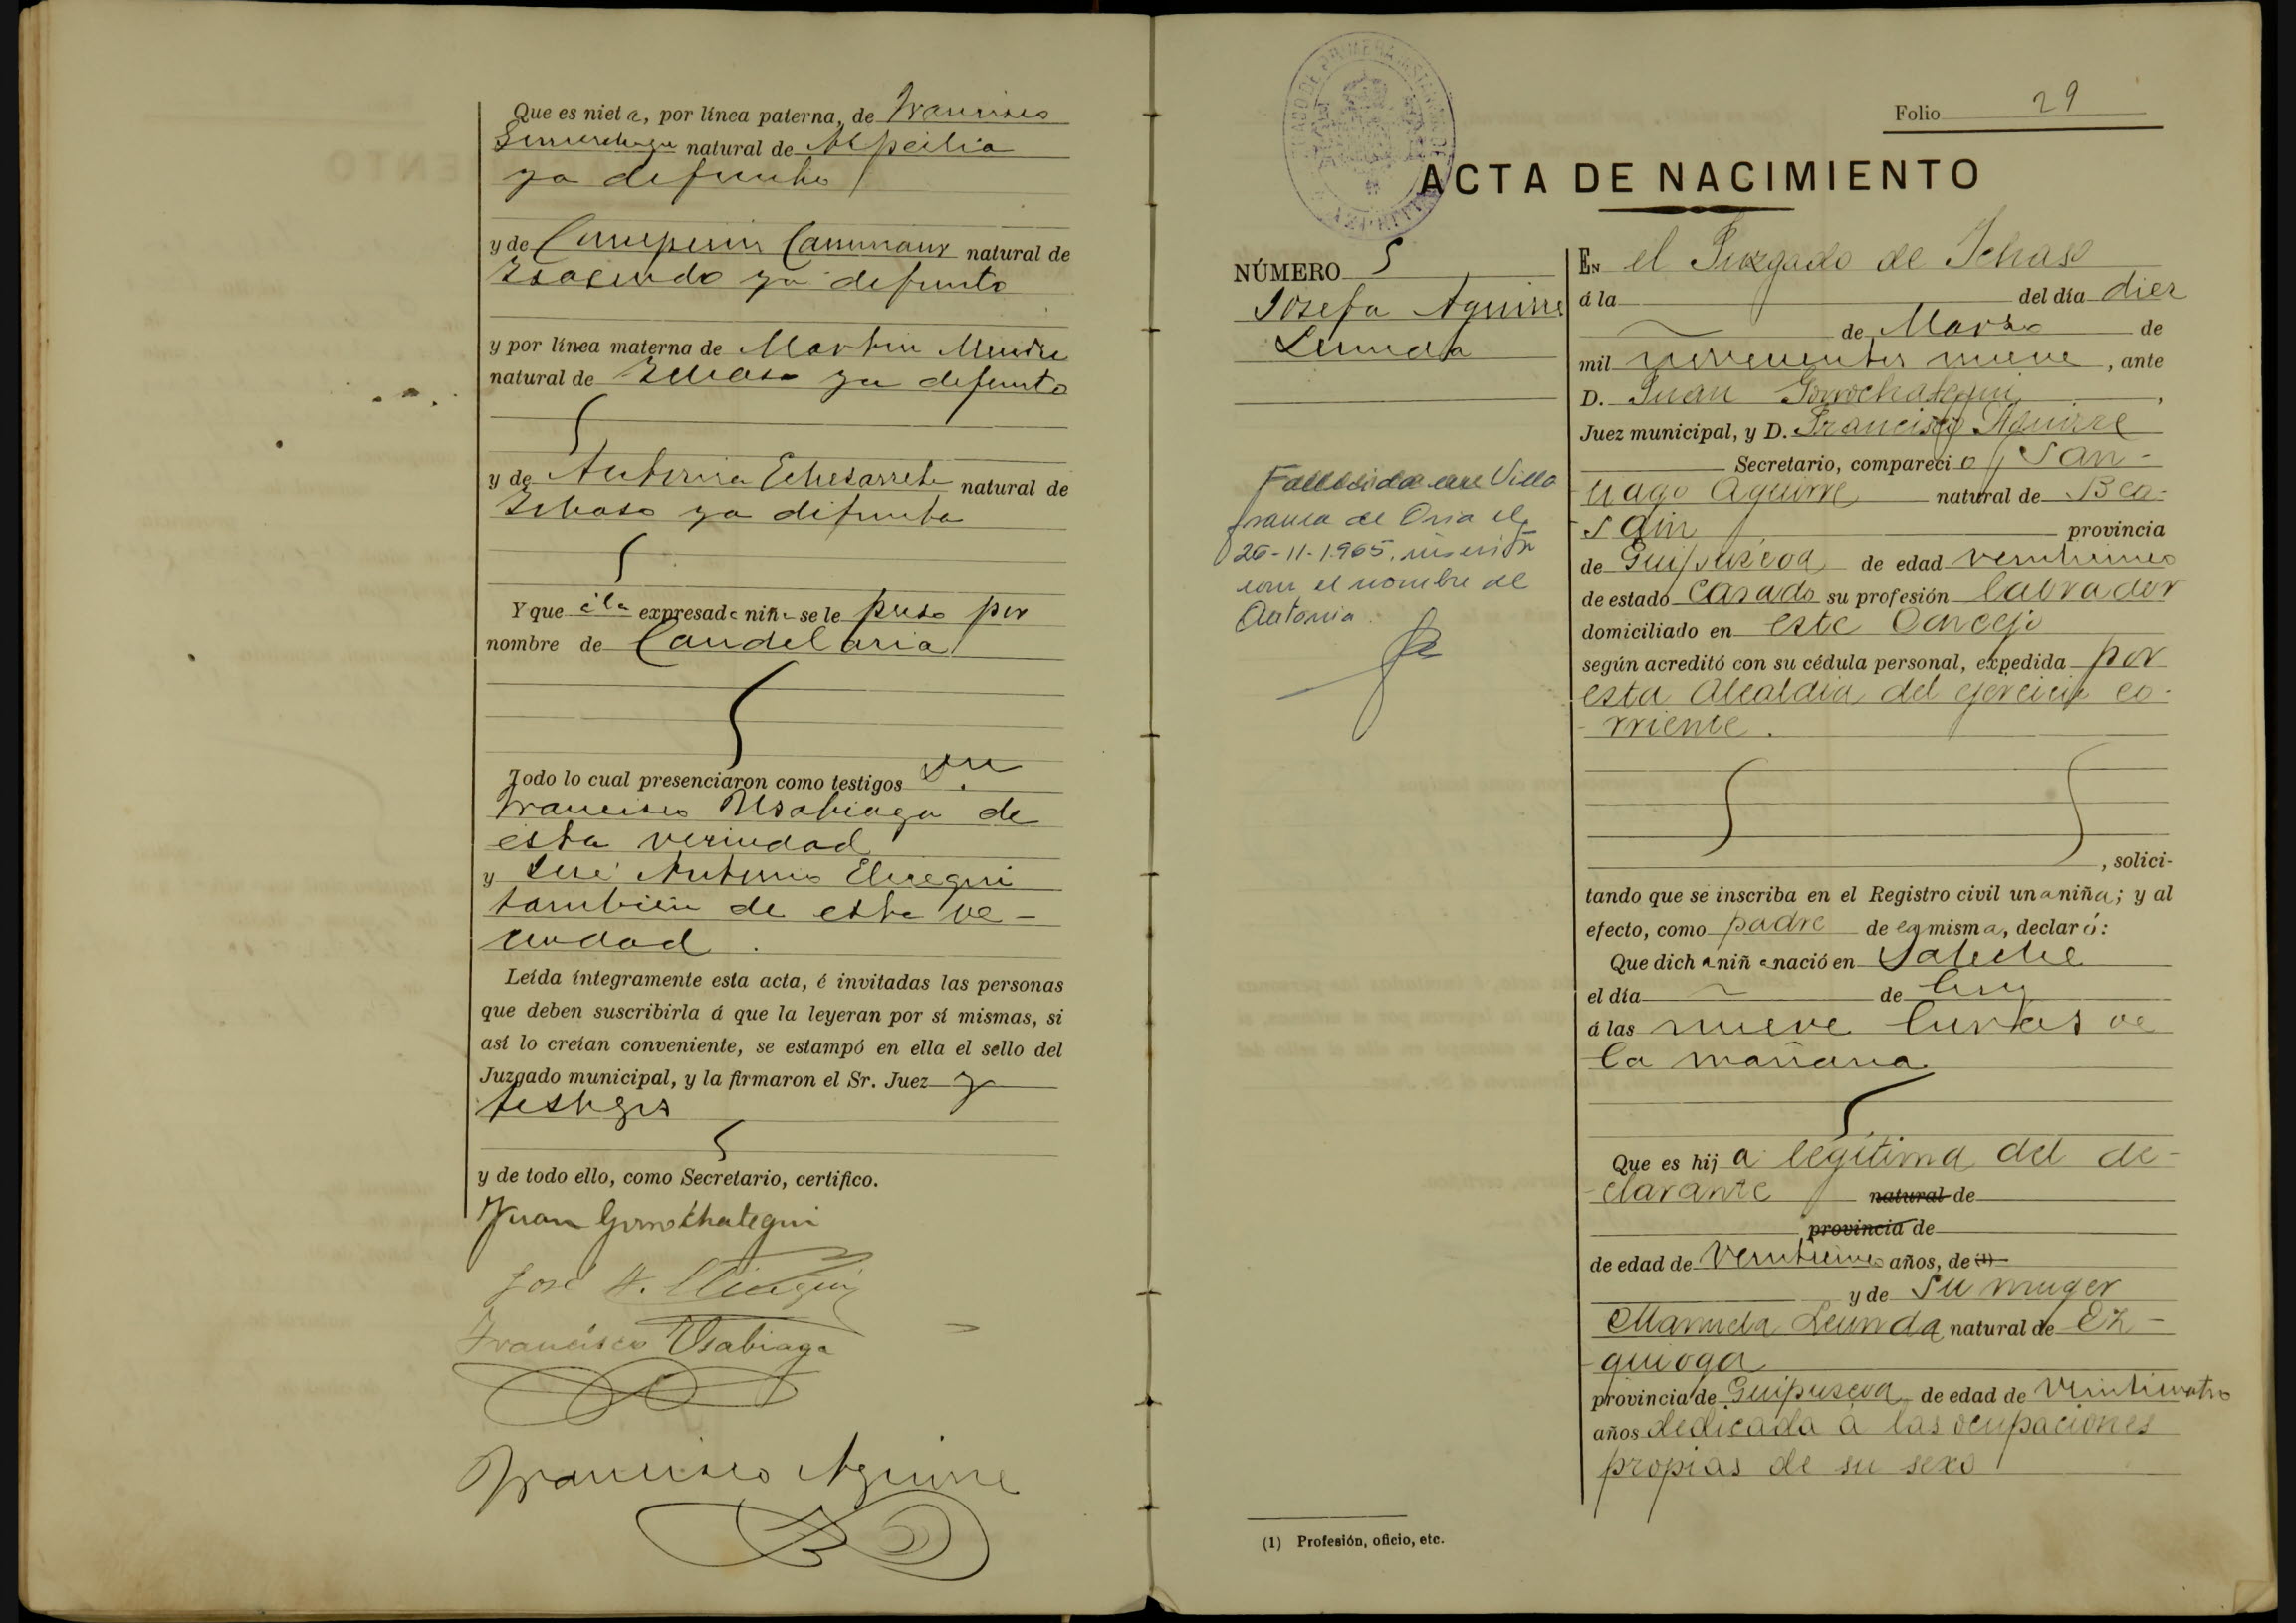 Que es nieta, por línea paterna, de Francisco
natural de Azpeitia
ya defunto
y de natural de
ya defunto
y por línea materna de Martin
natural de Ichaso ya defunto
y de Antonia Echezarreta natural de
Ichaso ya difunta
Y que á la expresada niña se le puso por
nombre de Candelaria
Todo lo cual presenciaron como testigos Dn.
Francisco Usabiaga de
esta vecindad
y José Antonio
también de esta ve-
cindad.
Leída íntegramente esta acta, é invitadas las personas
que deben suscribirla á que la leyeran por sí mismas, si
así lo creían conveniente, se estampó en ella el sello del
Juzgado municipal, y la firmaron el Sr. Juez y
testigos
y de todo ello, como Secretario, certifico.
Juan Gorrochategui
José A.
Francisco Usabiaga
Francisco Aguirre
Folio 29
ACTA DE NACIMIENTO
NÚMERO 5
Josefa Aguirre
Leunda
Fallecida en Villa
franca de Oria el
26-11-1.965,
con el nombre de
Antonia.
EN el Juzgado de Ichaso
á la del día diez
de Marzo de
mil novecientos nueve, ante
D. Juan Gorrochategui,
Juez municipal, y D. Francisco Aguirre
Secretario, compareció San-
tiago Aguirre natural de Bea-
sain provincia
de Guipuzcoa de edad
de estado casado su profesión labrador
domiciliado en este Concejo
según acreditó con su cédula personal, expedida por
esta Alcaldia del ejercicio co-
rriente.
, solici-
tando que se inscriba en el Registro civil una niña; y al
efecto, como padre de la misma, declaró:
Que dicha niña nació en
el día de hoy
á las nueve horas de
la mañana
Que es hija legitima del de-
clarante natural de
provincia de
de edad de años, de (1)
y de su muger
Manuela Leunda natural de Ez-
quioga
provincia de Guipuzcoa de edad de veinticuatro
años dedicada á las ocupaciones
propias de su sexo
(1) Profesión, oficio, etc.